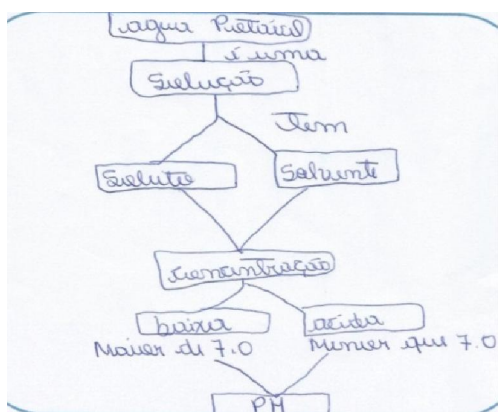 agua Potável
é uma
Solução
Tem
Soluto Solvente
Concentração
baixa acida
Maior de 7.0 Menor que 7.0
PH